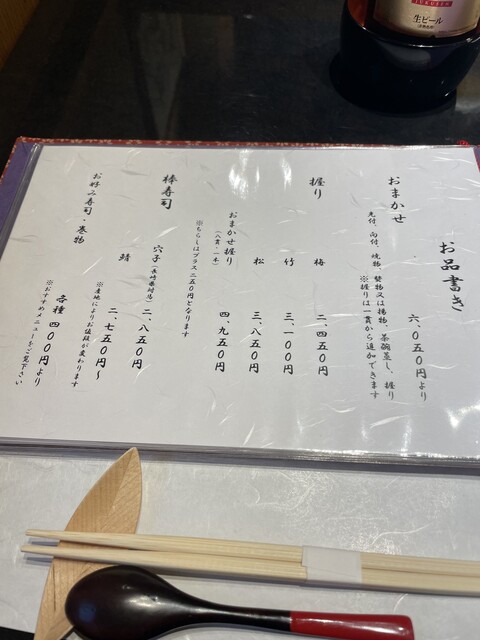 生ビール
お品書き
おまかせ
六、〇五〇円より
先付、向付、焼物、蟹物又は揚物、茶碗蒸し、握り
※握りは一貫から追加できます
握り
梅
二、四五〇円
竹
三、一〇〇円
松
三、八五〇円
おまかせ握り
(八貫・一本)
四、九五〇円
※ちらしはプラス二五〇円となります
棒寿司
穴子(長崎県対馬)
二、八五〇円
鯖
二、七五〇円〜
※産地によりお値段が変わります
お好み寿司・巻物
各種 四〇〇円より
※おすすめメニューをご覧下さい